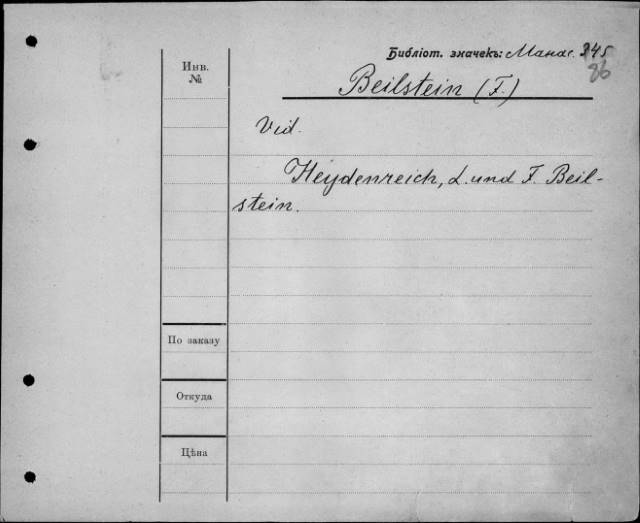 Библіот. значекъ: Манас. 345
86
Инв.
№
Beilstein (F.)
Vid.
Heydenreich, L. und F. Beil-
stein.
По заказу
Откуда
Цѣна